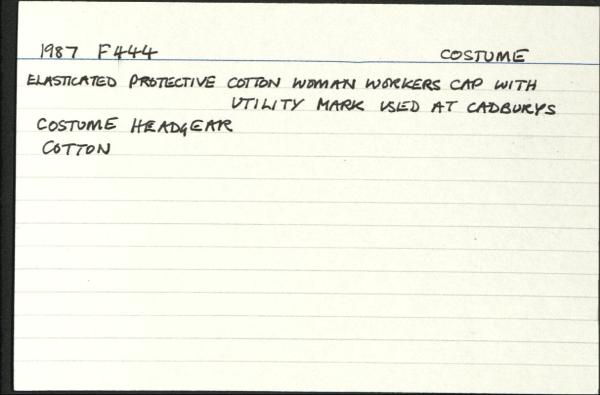 1987 F444 COSTUME
ELASTICATED PROTECTIVE COTTON WOMAN WORKERS CAP WITH
UTILITY MARK USED AT CADBURYS
COSTUME HEADGEAR
COTTON